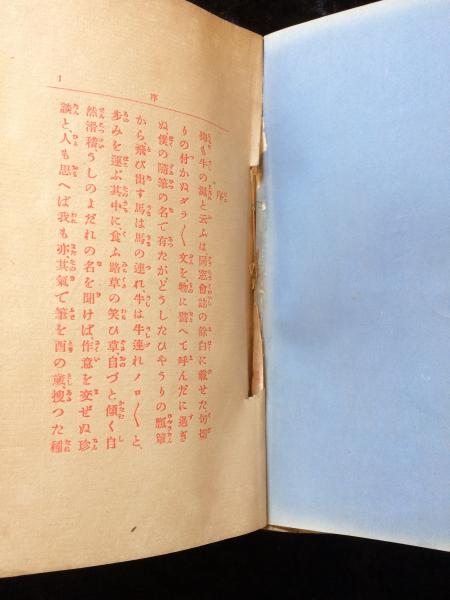 序
1
序
抑も牛の涎と云ふは同窓會誌の餘白に載せた句切
りの付かぬダラ〱文を、物に譬へて呼んだに過ぎ
ぬ僕の隨筆の名で有たが、どうしたひやうりの瓢簞
から飛び出す馬は馬の連れ、牛は牛連れノロ〱と、
歩みを運ぶ其中に、食ふ路草の笑ひ草、自づと傾く自
然滑稽、うしのよだれの名を聞けば作意を交ぜぬ珍
談と、人も思へば我も亦、其氣で筆を酉の歳、捜つた種